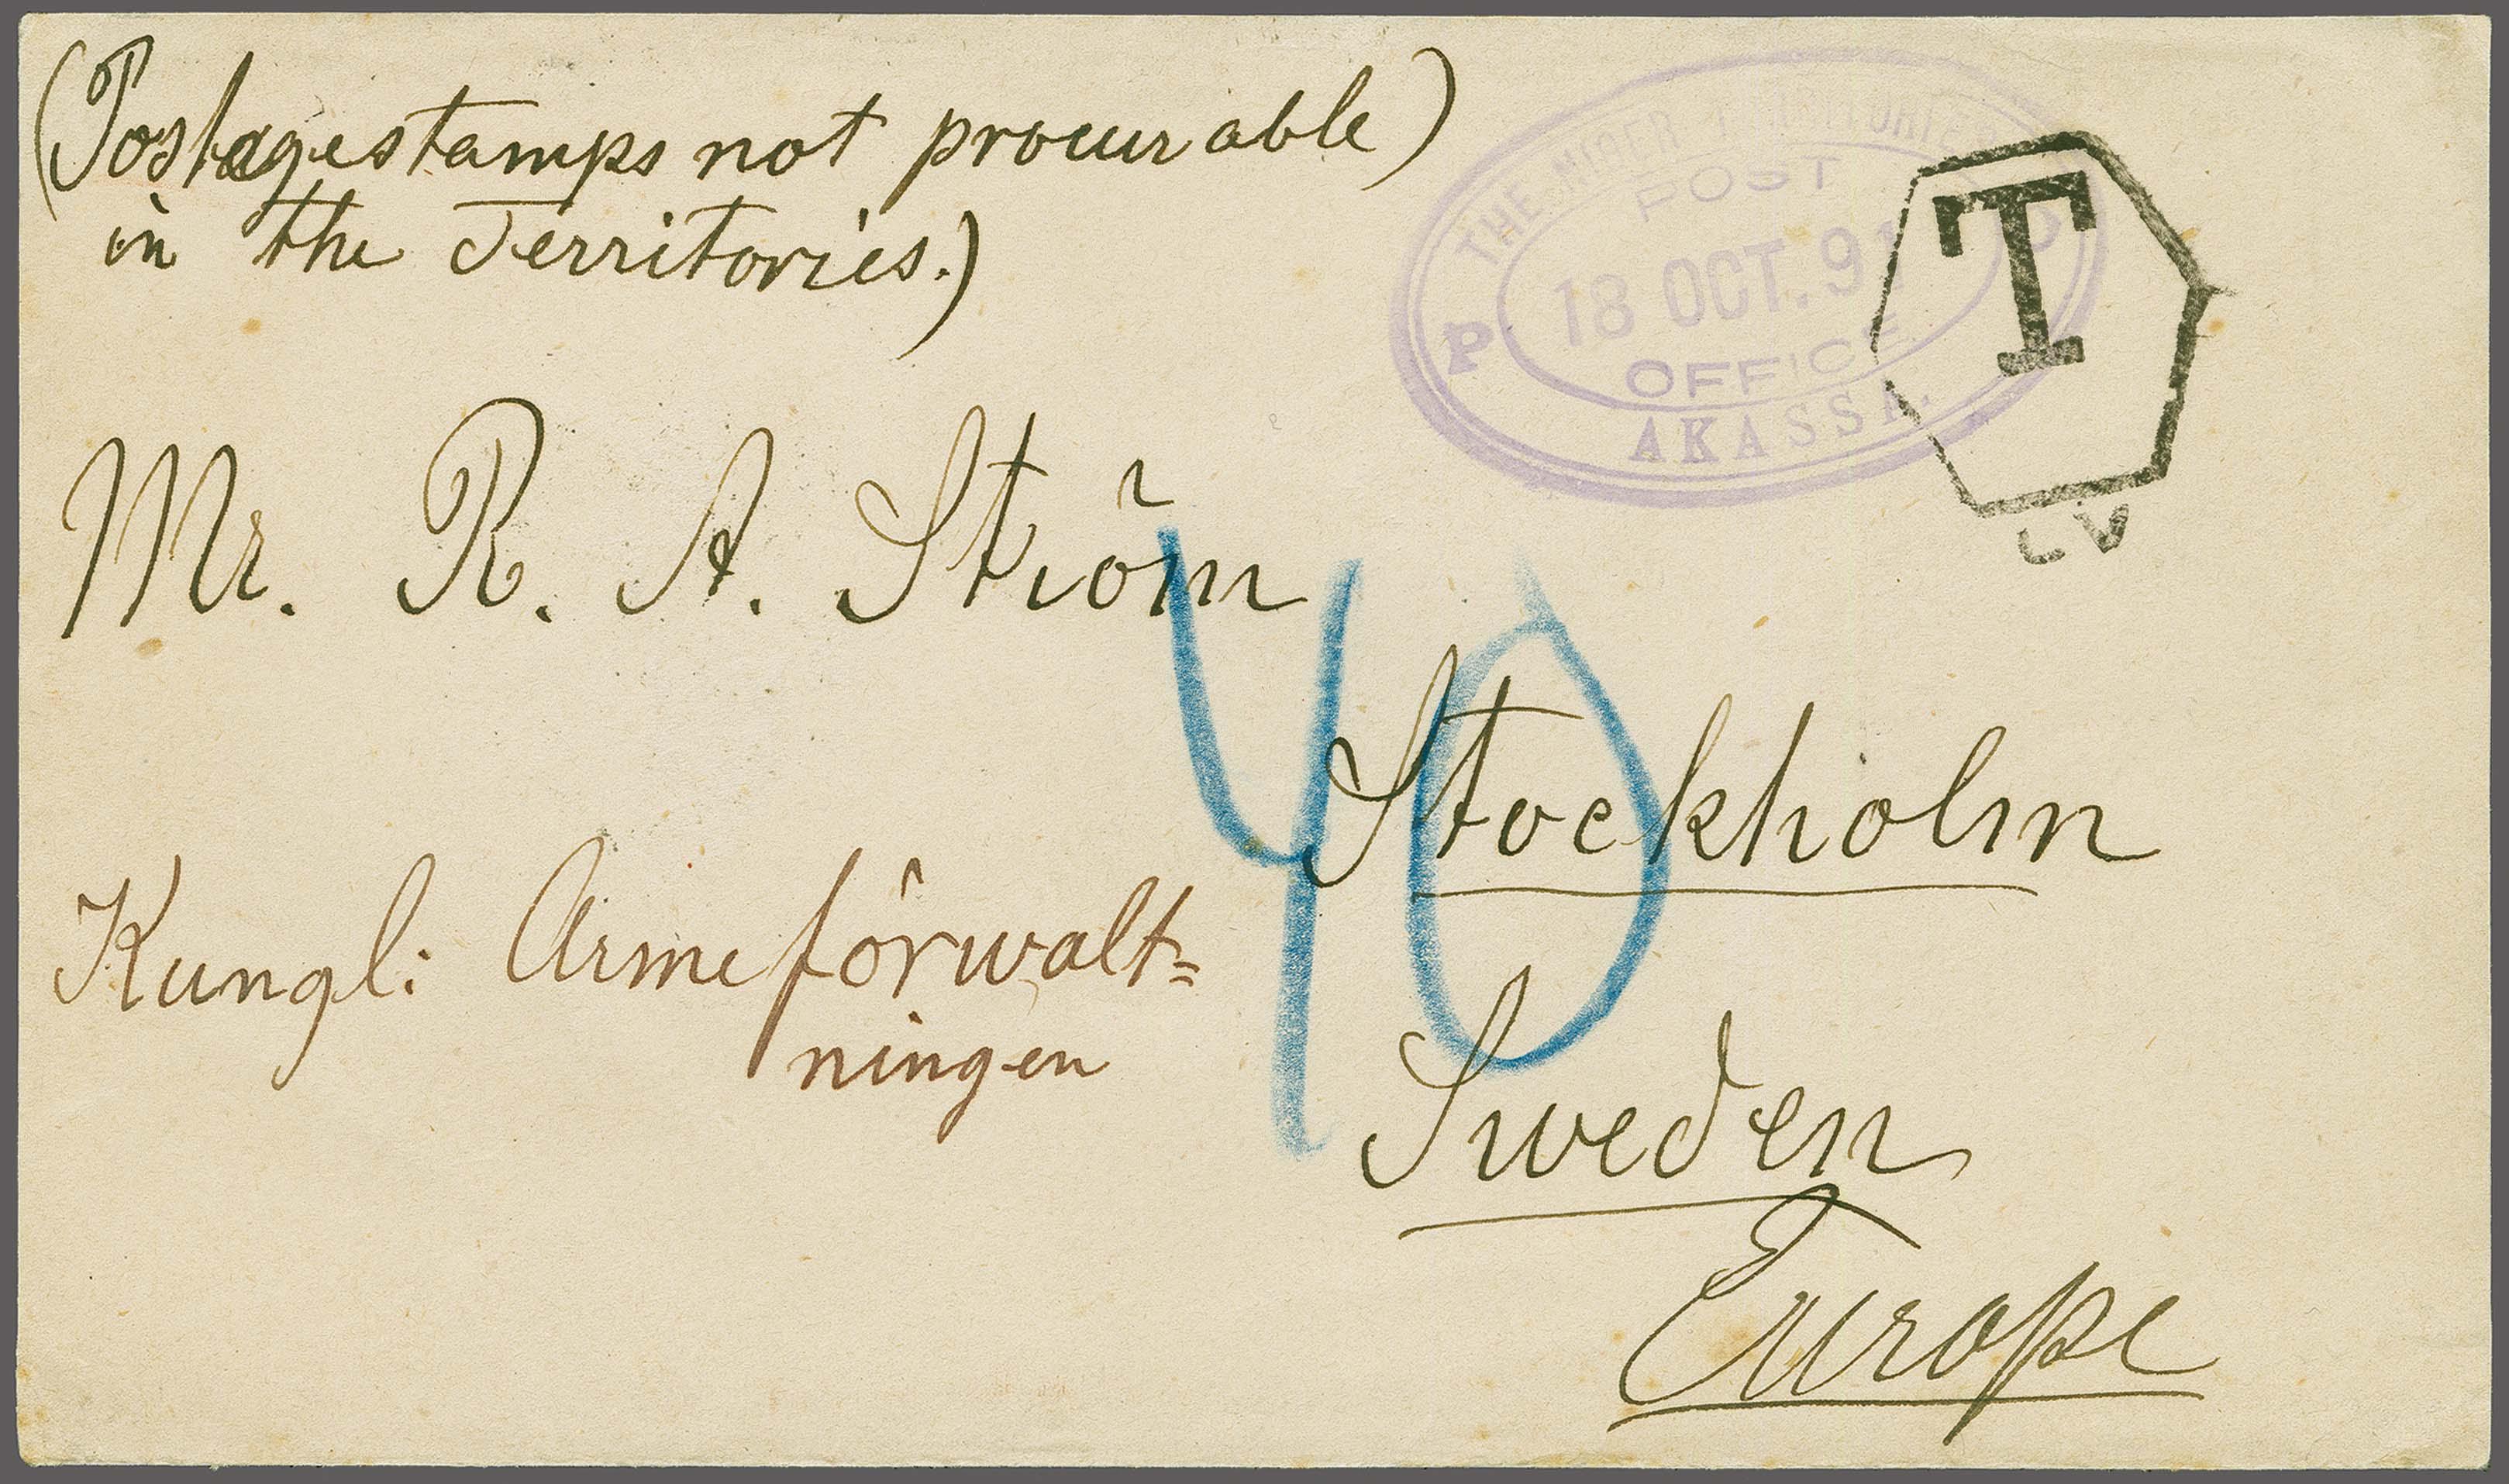 (Postagestamps not procurable)
in the Territories.)
THE NIGER TERRITORIES
POST
18 OCT. 91
OFFICE
P D
AKASSA.
T
LV
Mr. R. A. Ström
40
Stockholm
Kungl: Armeförwalt=
ningen
Sweden
Europe